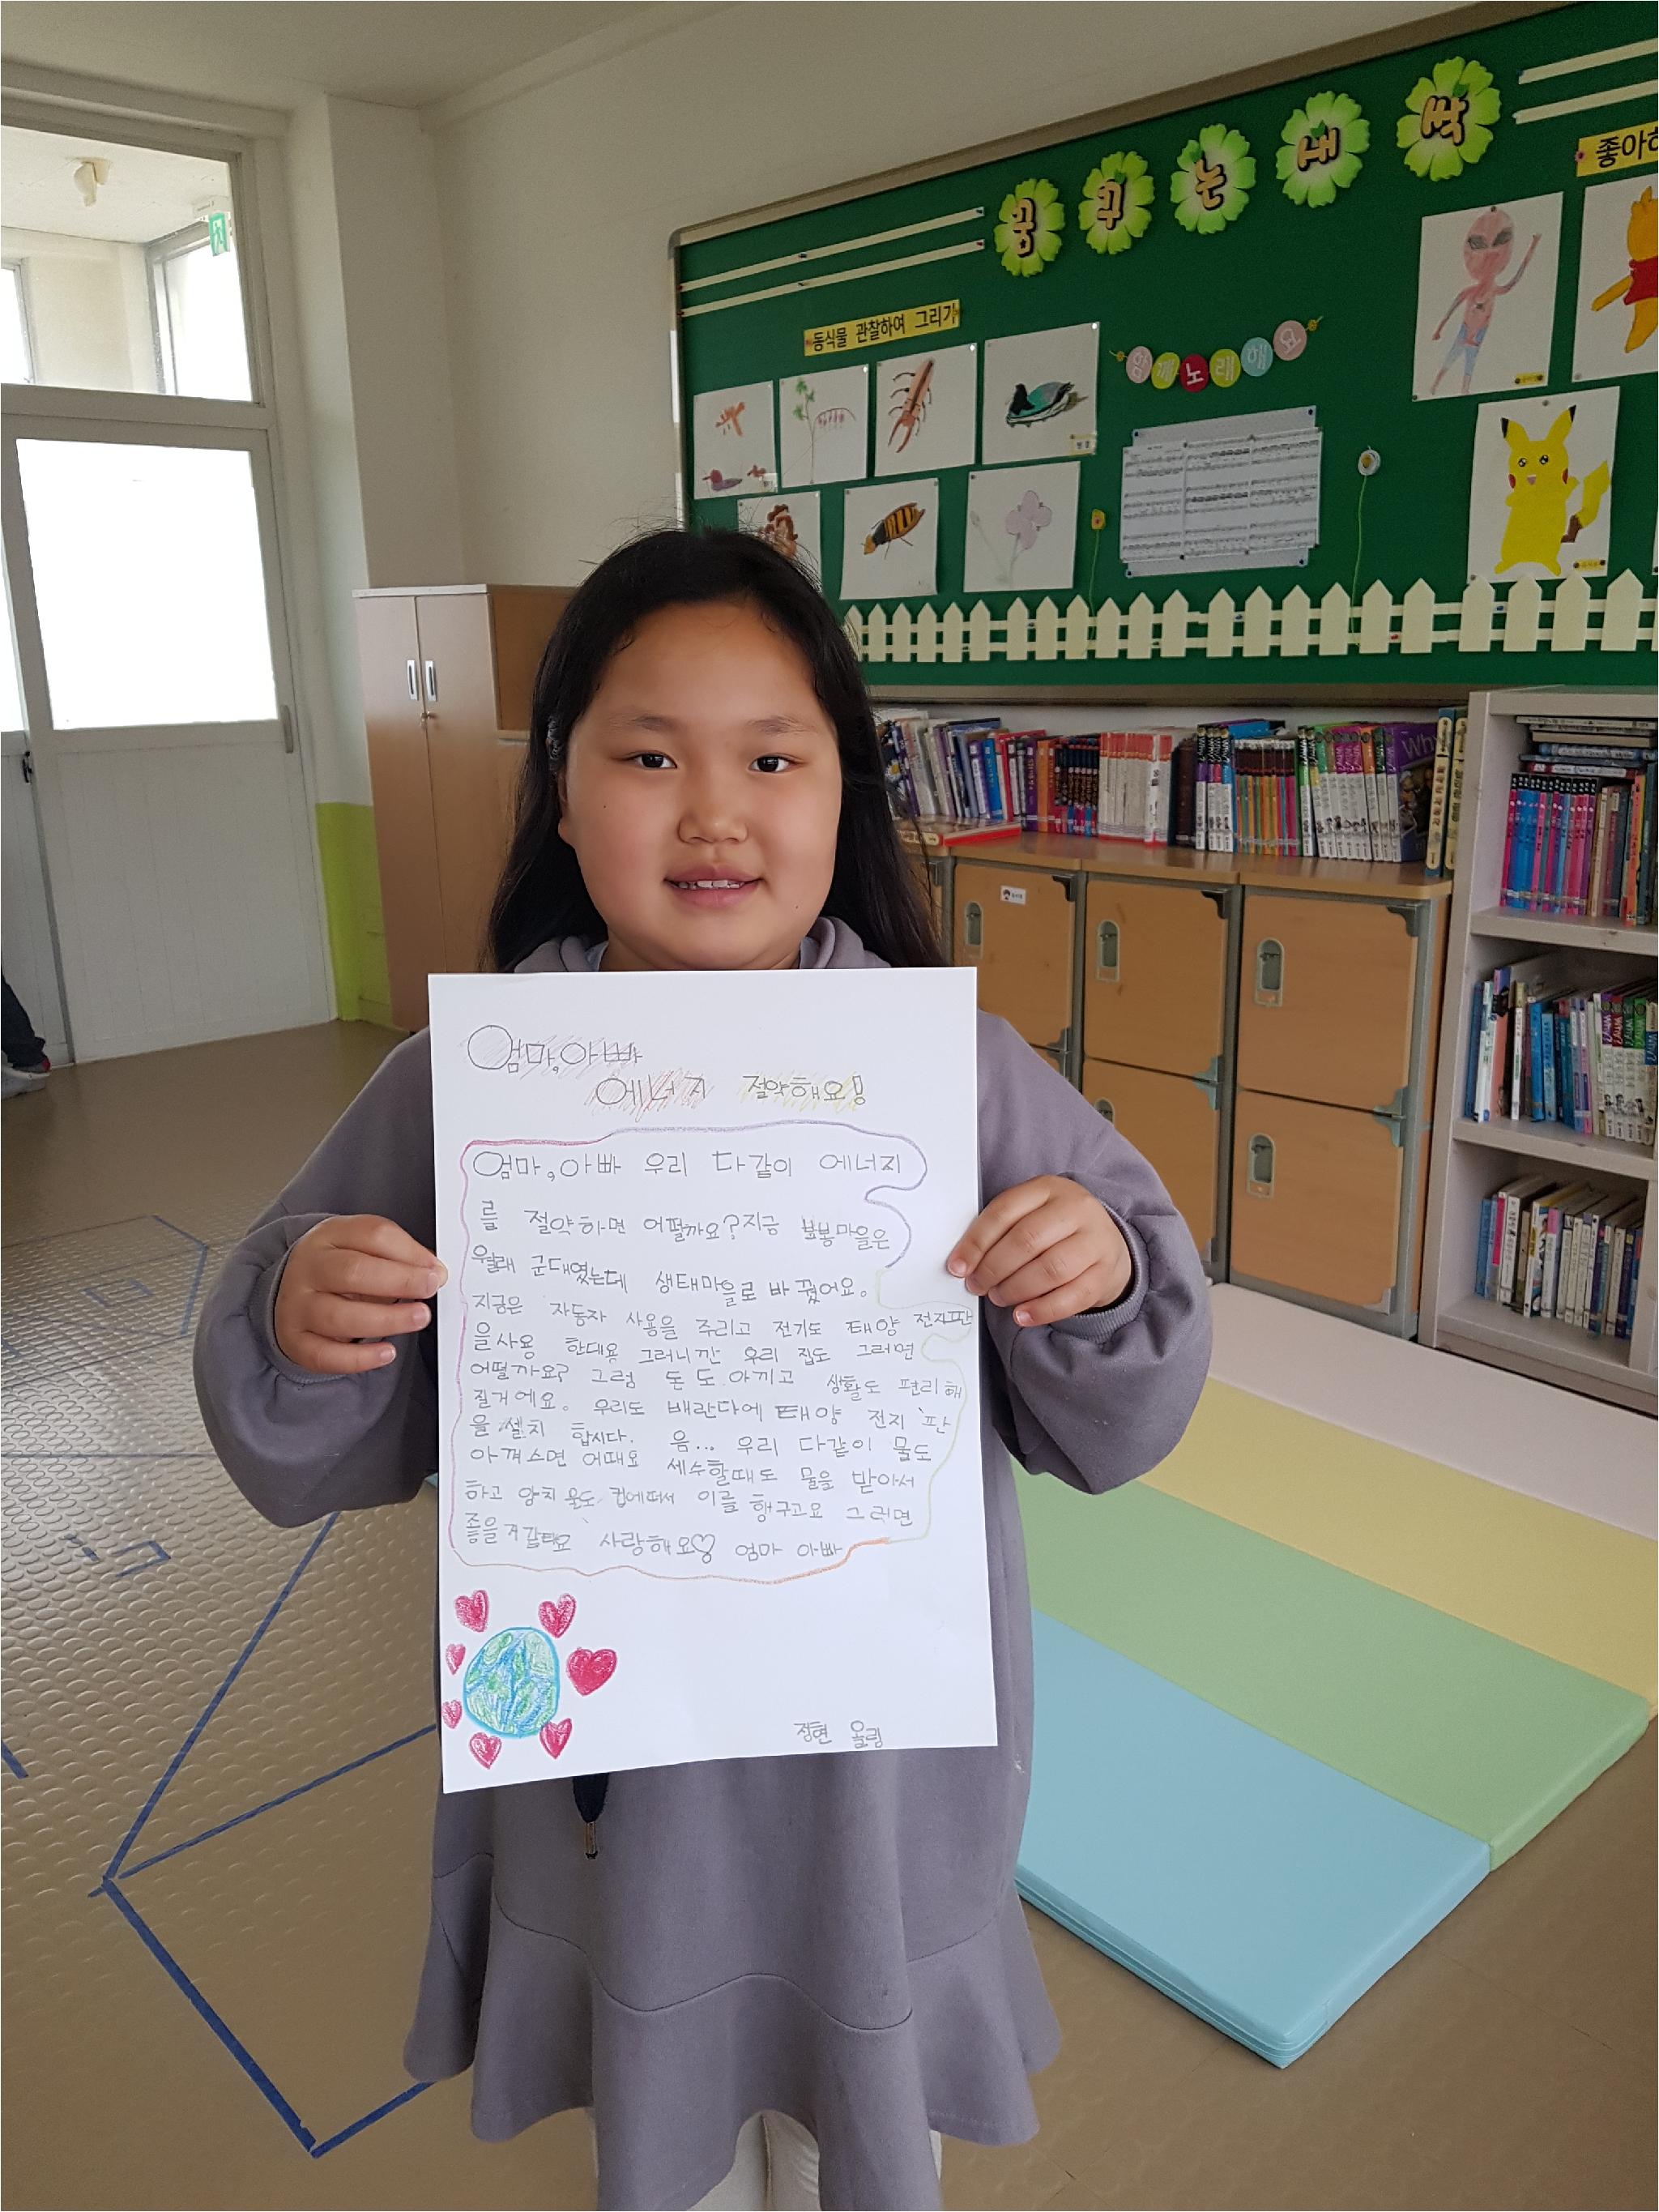 꿈꾸는 내 싹
좋아하
동식물 관찰하여 그리기
함께 노래해요
Why
엄마,아빠
에너지 절약해요!
엄마,아빠 우리 다같이 에너지
를 절약하면 어떨까요?지금 마을은
군대였는데 생태마을로 바꿨어요.
지금은 자동차 사용을 주리고 전기도 태양 전지판
을사용 한대용 그러니깐 우리 집도 그러면
어떨까요? 그럼 돈도 아끼고 생활도 편리해
질거에요. 우리도 배란다에 태양 전지 판
을 설치 합시다. 음... 우리 다같이 물도
아껴스면 어때요 세수할때도 물을 받아서
하고 양치 컵에떠서 이를 행구고요 그러면
좋을거 사랑해요♡ 엄마 아빠
정현 올림